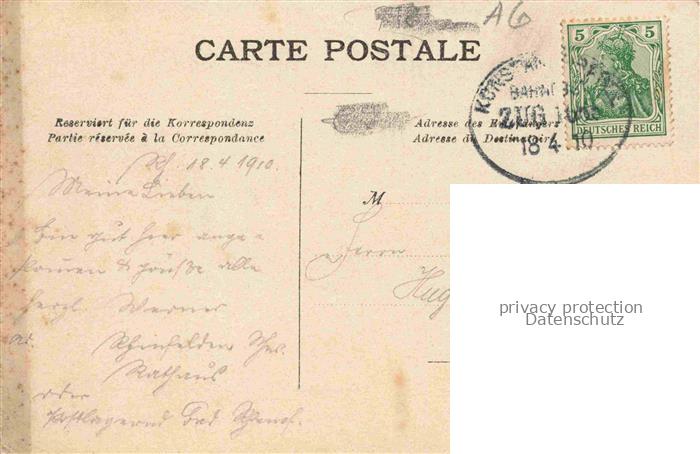 A6
CARTE POSTALE
5 5
DEUTSCHES REICH
BAHNPOST
ZUG
18 4 10
Reserviert für die Korrespondenz
Partie réservée à la Correspondance
Adresse des Empfängers
Adresse du Destinataire
Rh. 18.4 1910.
Meine Lieben
Bin gut hier ange=
kommen & grüße alle
herzl. Werner
Rheinfelden
Rathaus
oder
Postlagernd Bad
M
Herrn
Hug
privacy protection
Datenschutz